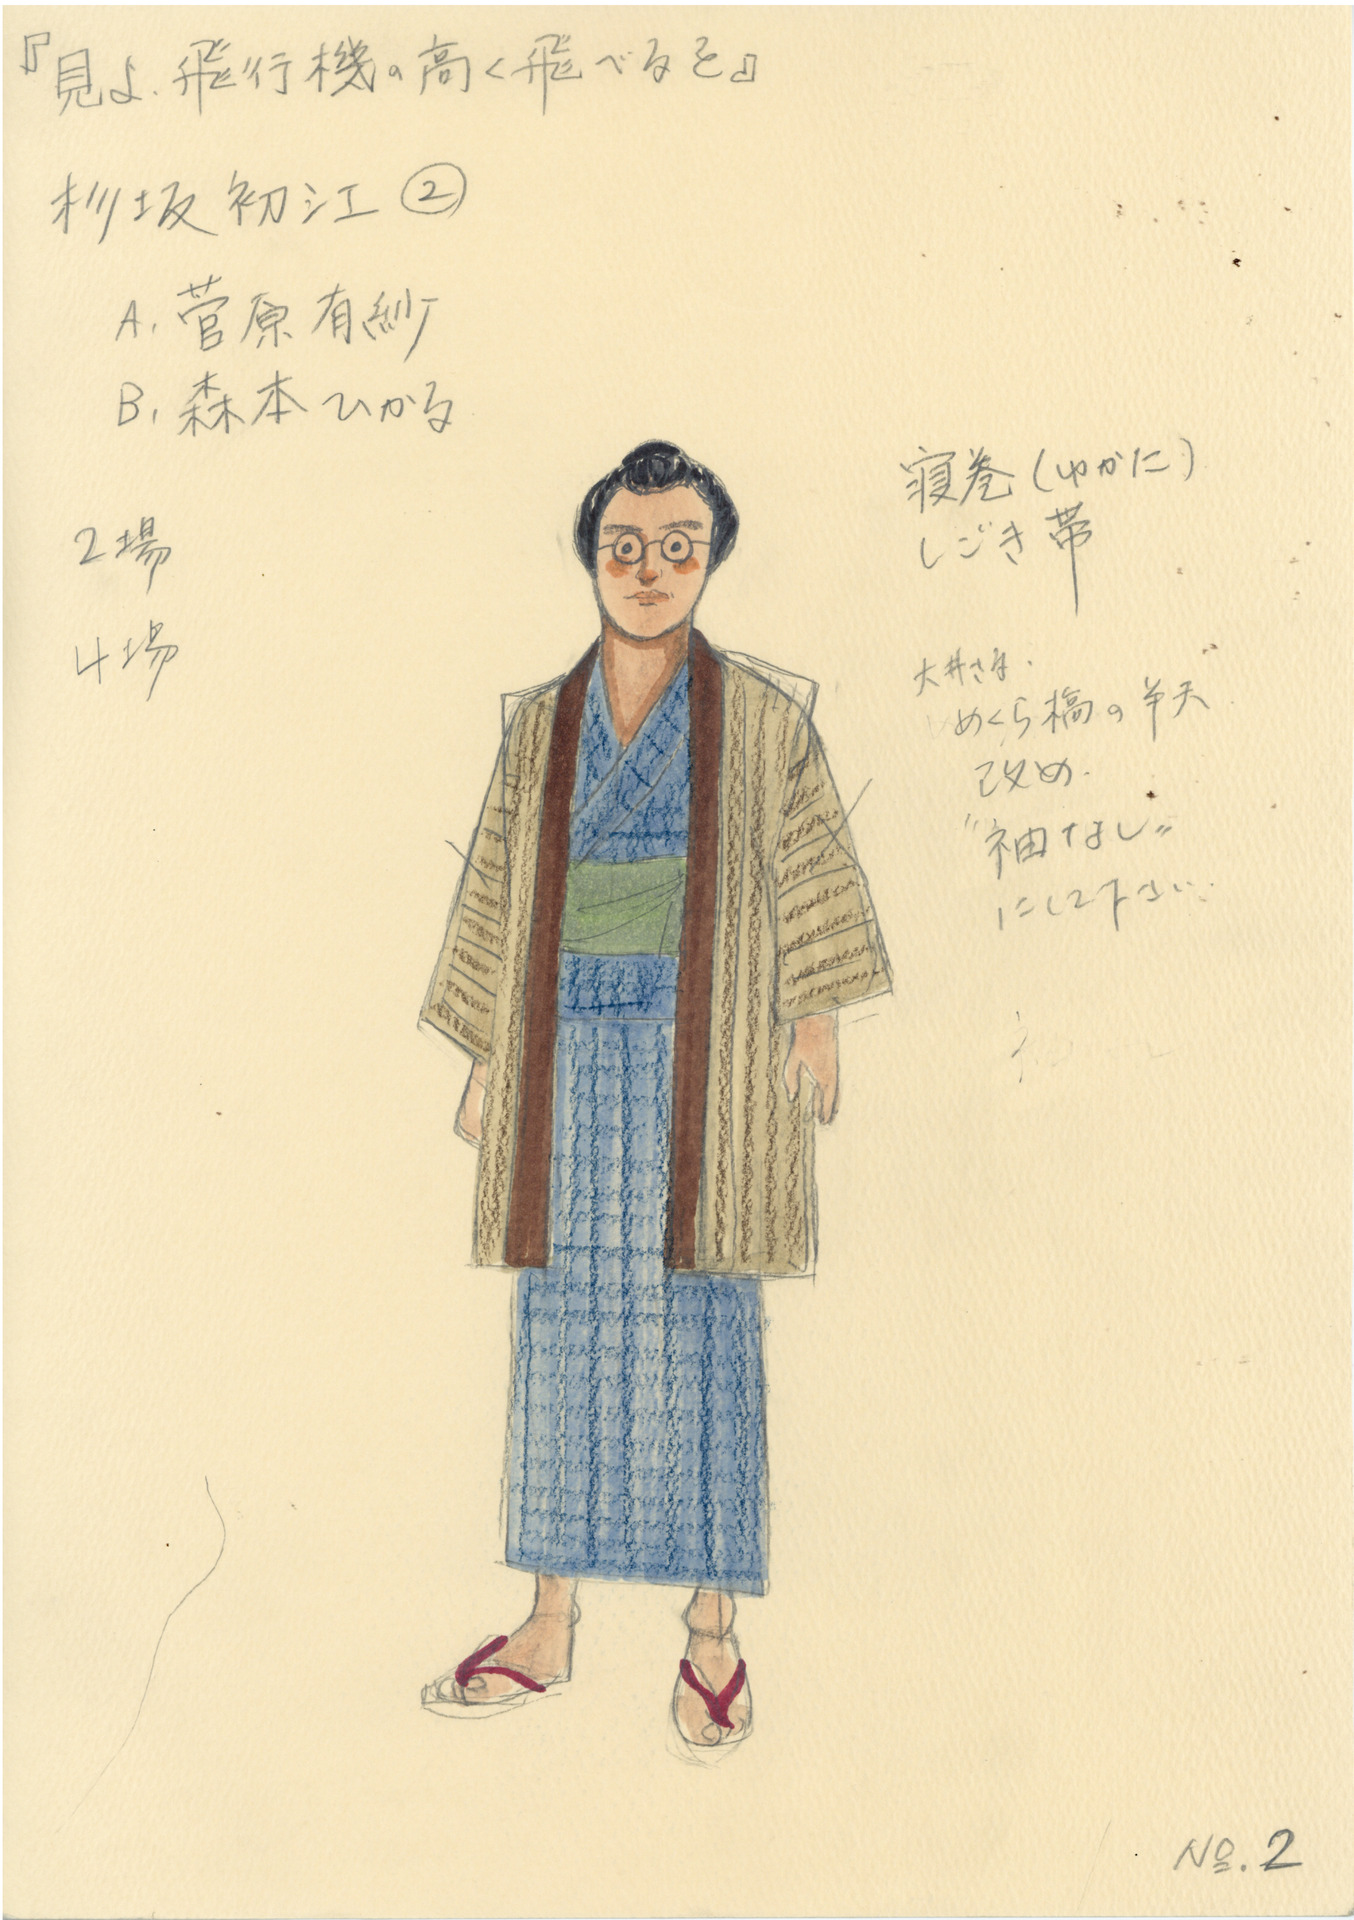 『見よ、飛行機の高く飛べるを』
杉坂初江 ②
A. 菅原有紗
B. 森本ひかる
2場
4場
寝巻(ゆかた)
しごき帯
大井さま.
めくら縞の半天
改め.
"袖なし"
にして下さい.
No. 2